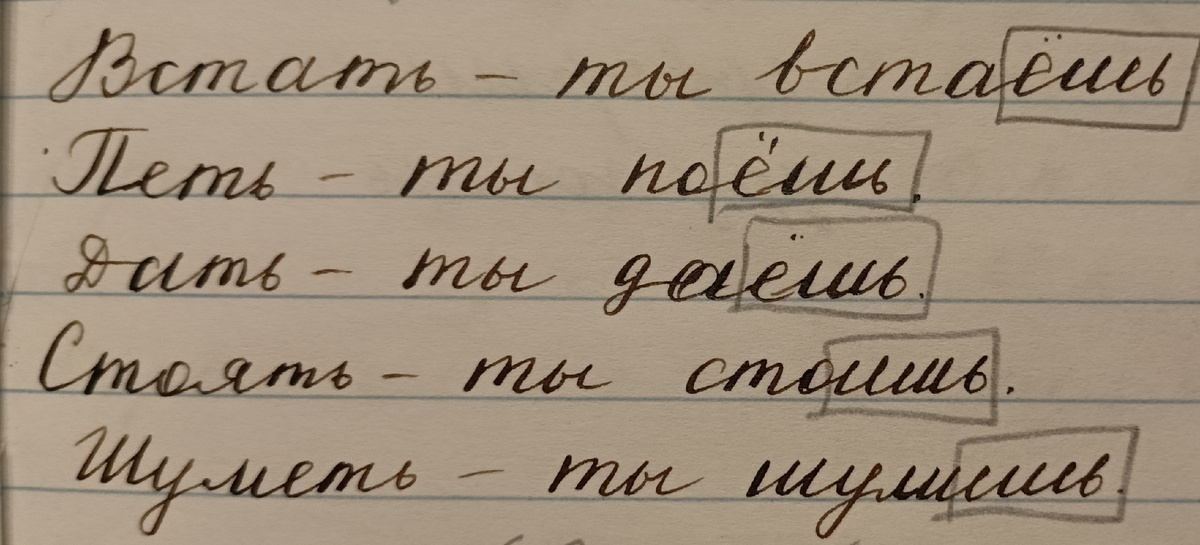 Встать – ты встаёшь
Петь – ты поёшь.
Дать – ты даёшь.
Стоять – ты стоишь.
Шуметь – ты шумишь.